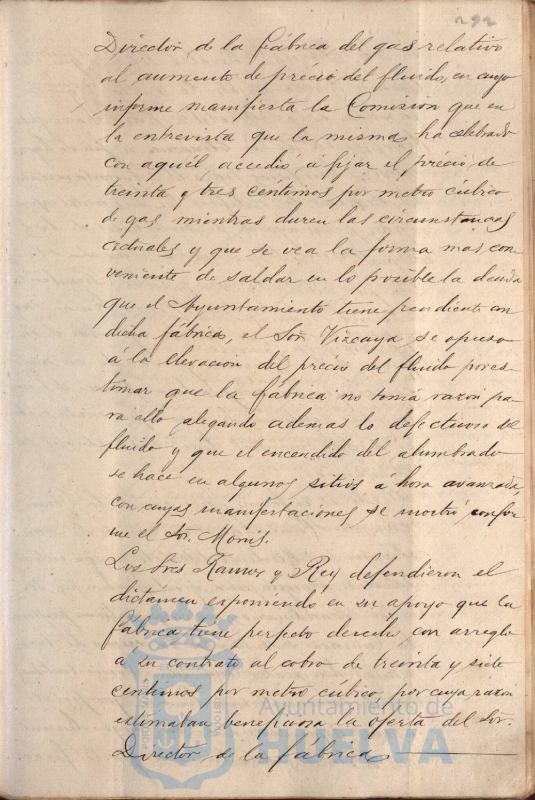 292
Director de la fábrica del gas relativo
al aumento de précio del fluido, en cuyo
informe manifiesta la Comision que en
la entrevista que la misma ha celebrado
con aquél, accedió á fijar el précio de
treinta y tres céntimos por metro cúbico
de gas mientras duren las circunstancias
actuales y que se vea la forma mas con
veniente de saldar en lo posible la deuda
que el Ayuntamiento tiene pendiente con
dicha fábrica, el Sor. Vizcaya se opuso
a la elevacion del precio del fluido por es-
timar que la fábrica no tenia razon pa-
ra ello alegando ademas lo defectuoso del
fluido y que el encendido del alumbrado
se hace en algunos sitios á hora avanzada,
con cuyas manifestaciones se mostró confor-
me el Sor. Monís.
Los Sres Ramos y Rey defendieron el
dictámen esponiendo en su apoyo que la
fábrica tiene perfecto derecho, con arreglo
á su contrato al cobro de treinta y siete
centimos por metro cúbico, por cuya razon
estimaban beneficiosa la oferta del Sor.
Director de la fábrica
Ayuntamiento de
HUELVA